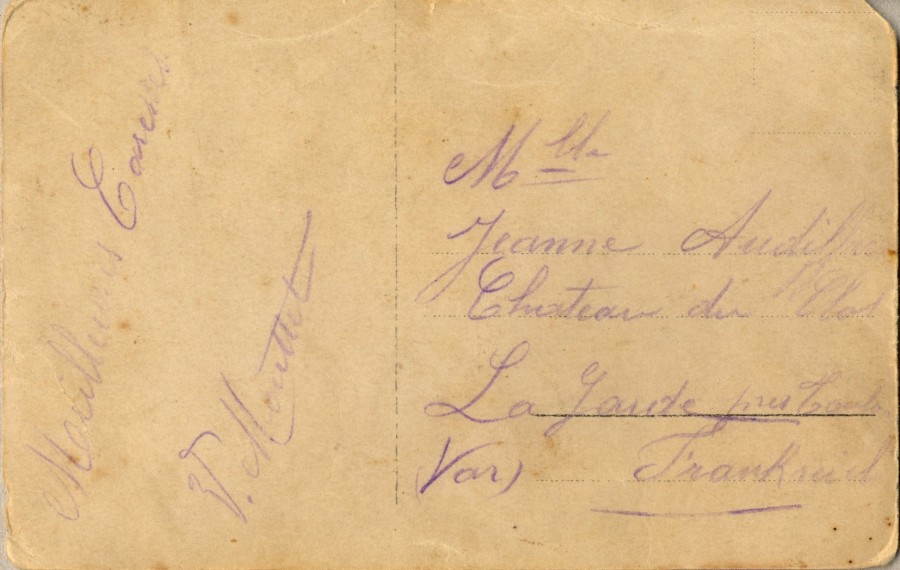 Meilleures Caresses
P. Mouttet
Mlle
Jeanne
Chateau du Clos
La Garde près Toulon
(Var) Frankreich